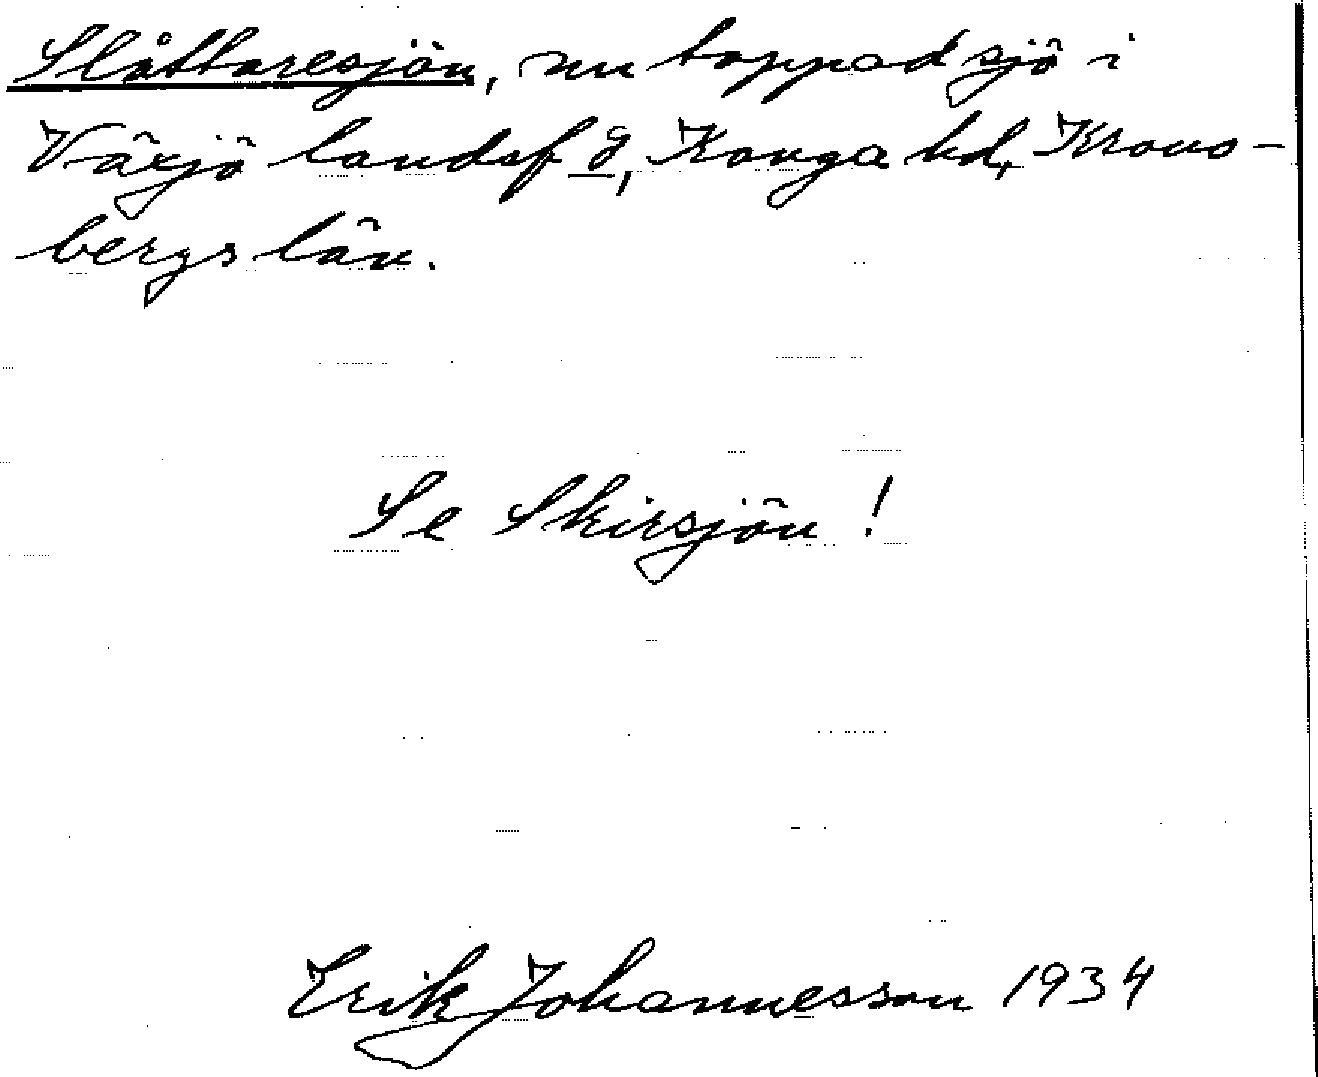 Slåttaresjön, nu tappad sjö i
Växjö landsf g, Konga hd, Krono-
bergs län.
Se Skirsjön!
Erik Johannesson 1934